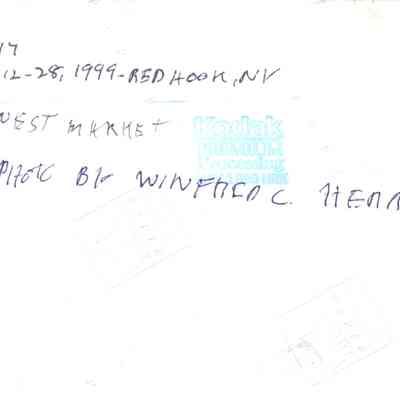 17
12-28, 1999-RED HOOK, NY
WEST MARKET
Kodak
PREMIUM
Processing
PHOTO BY WINFRED C. HENR